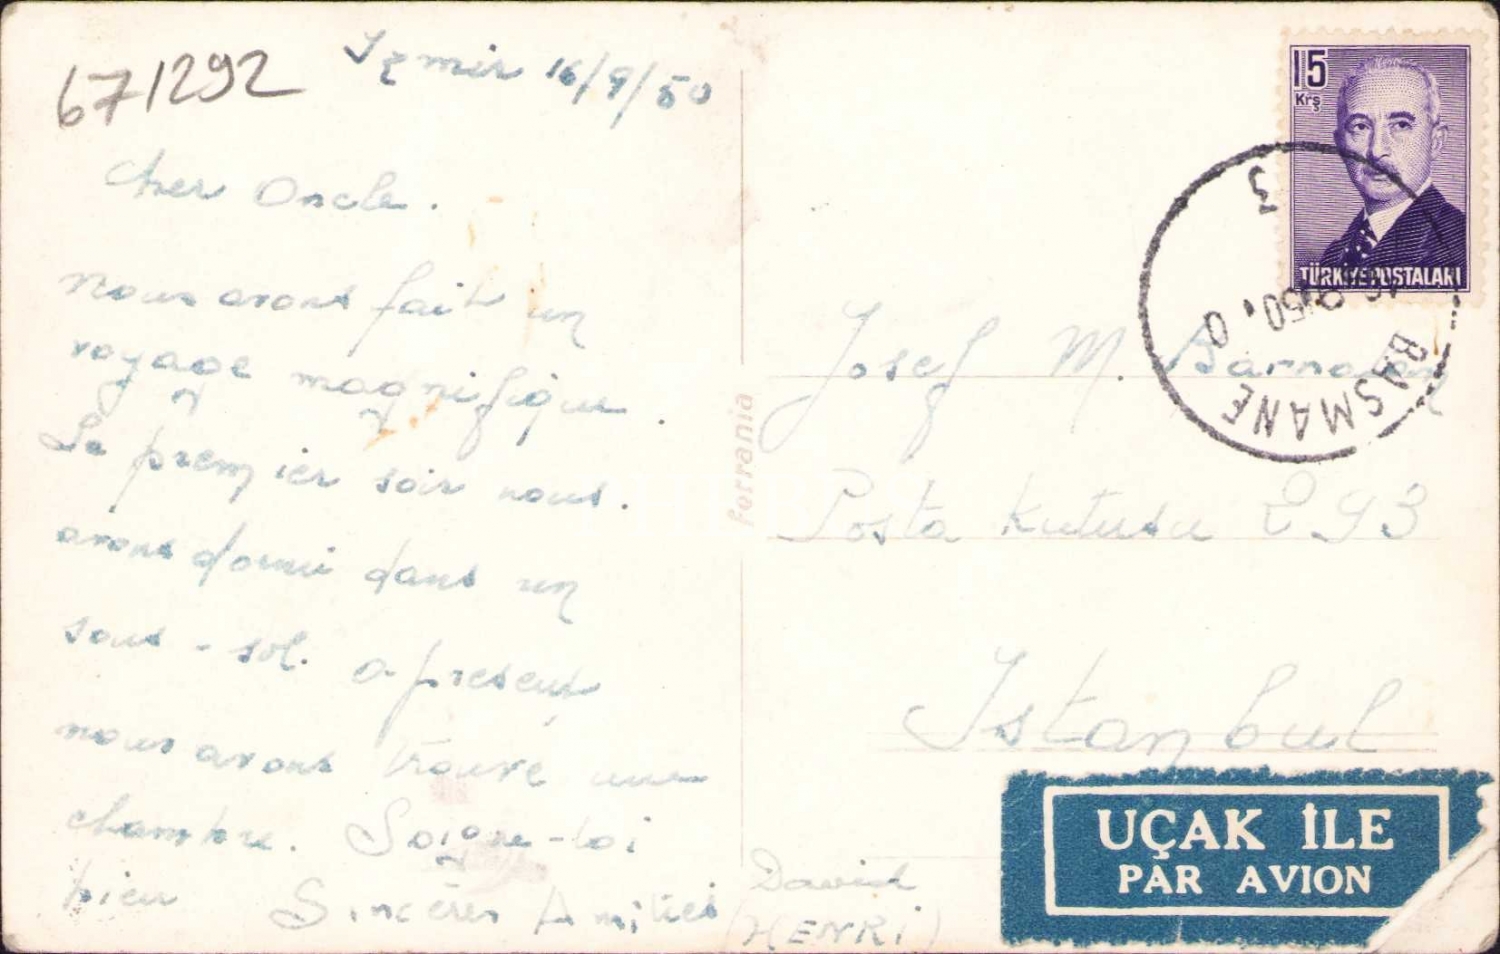 671292
Izmir 16/9/50
Cher Oncle.
Nous avons fait un
voyage magnifique.
Le premier soir nous.
avons dormi dans un
sous-sol. a present
nous avons trouvé une
chambre. Soigne-toi
bien Sincères Amitiés David
(HENRI)
ferrania
15
Krş
TÜRKİYE POSTALARI
BASMANE
3
Josef M.
Posta Kutusu 293
Istanbul
UÇAK İLE
PAR AVION